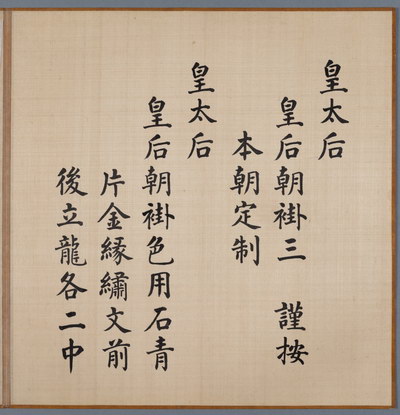 皇太后
皇后朝褂三 謹按
本朝定制
皇太后
皇后朝褂色用石青
片金緣繡文前
後立龍各二中